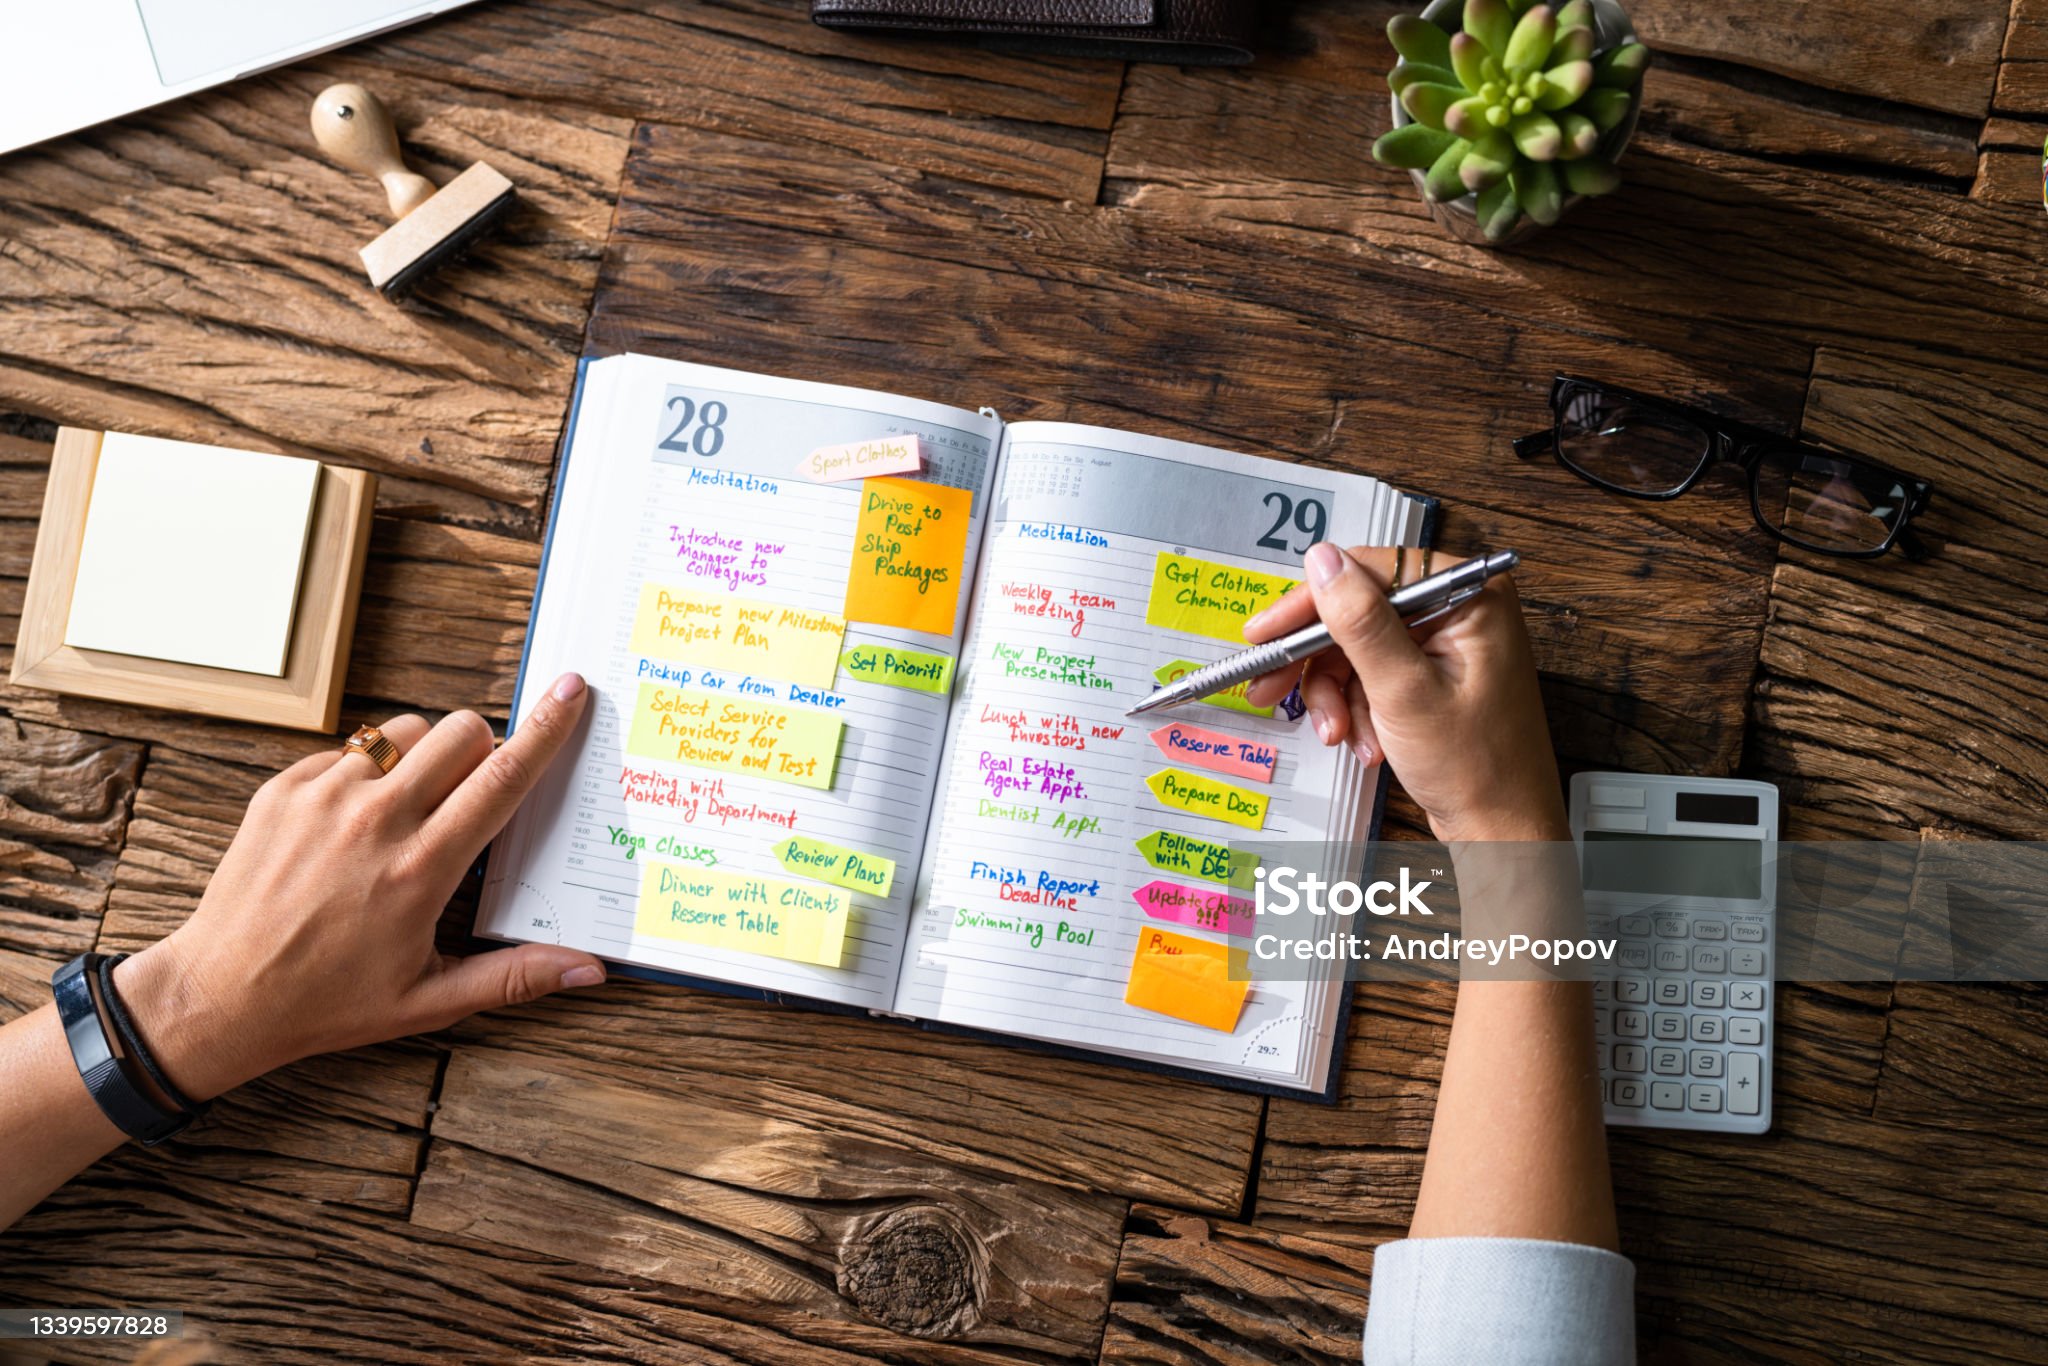 28
Sport Clothes
Meditation
Drive to
Post
Ship
Packages
Introduce new
Manager to
Colleagues
Prepare new Milestone
Project Plan
Set Prioriti
Pickup Car from Dealer
Select Service
Providers for
Review and Test
Meeting with
Marketing Department
Yoga Classes
Review Plans
Dinner with Clients
Reserve Table
Wichtig
28.7.
August
29
Meditation
Get Clothes
Chemical
Weekly team
meeting
New Project
Presentation
Lunch with new
Investors
Reserve Table
Real Estate
Agent Appt.
Prepare Docs
Dentist Appt.
Followup
with Dev
Finish Report
Deadline
Update Charts
!!!
Swimming Pool
Buy
29.7.
iStock™
Credit: AndreyPopov
TAX RATE
% TAX- TAX+
M- M+ ÷
7 8 9 ×
4 5 6 −
1 2 3 +
0 . =
1339597828